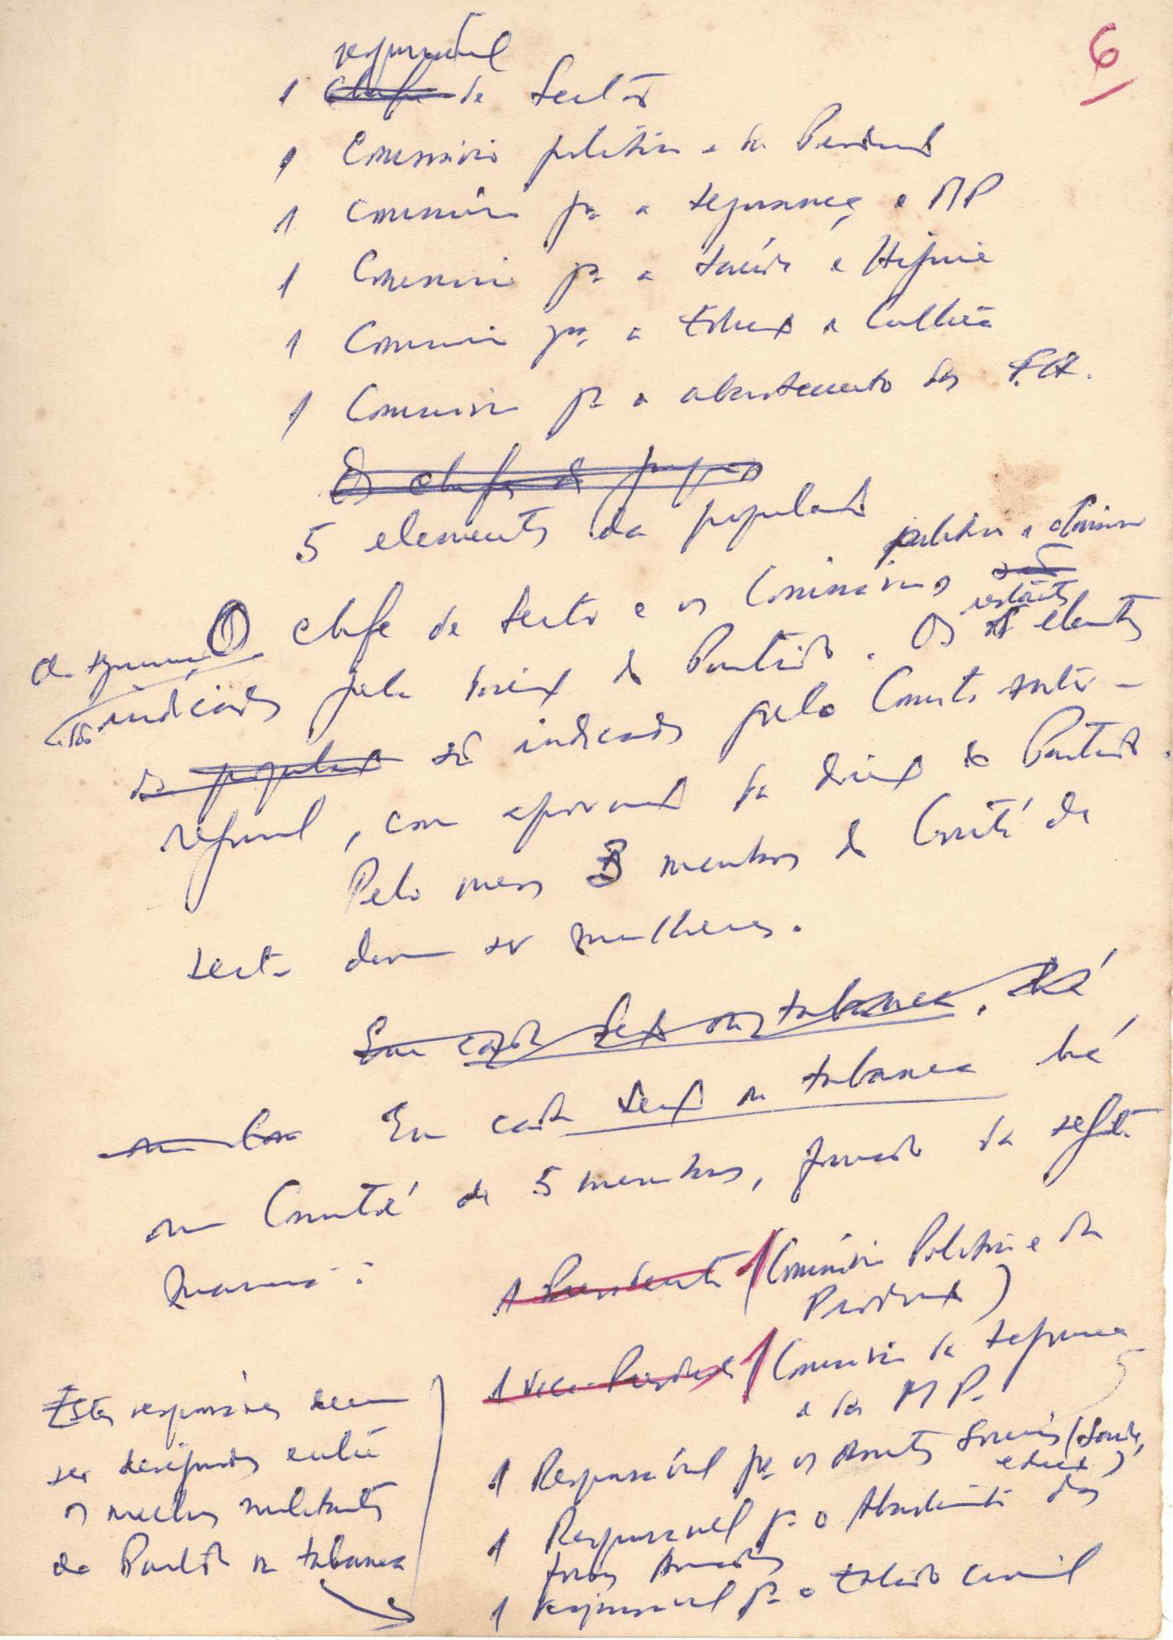 6
responsável
1 Chefe de Sector
1 Comissário político e da Produção
1 Comissário pa a segurança e MP
1 Comissário pa a Saúde e Higiene
1 Comissário pa a Educação e Cultura
1 Comissário pa o abastecimento das F.A.
Os chefes de grupos
5 elementos da população
político e
O chefe de Sector e os Comissários são
de segurança
restantes
indicados pela direcção do Partido. Os 5 elementos
são
da população são indicados pelo Comité Inter-
regional, com aprovação da direcção do Partido.
Pelo menos 3 membros do Comité de
sector devem ser mulheres.
Em cada secção ou tabanca, há
um Com Em cada secção ou tabanca há
um Comité de 5 membros, formado da seguinte
maneira:
1 Presidente 1 (Comissário Político e da
Produção)
1 Vice-Presidente 1 (Comissário da Segurança
e da MP.
1 Responsável pa os Assuntos Sociais (Saúde,
educação)
1 Responsável pa o Abastecimento das
Forças Armadas
1 responsável pa o Estado Civil
Estes responsáveis devem
ser designados entre
os melhores militantes
do Partido na tabanca